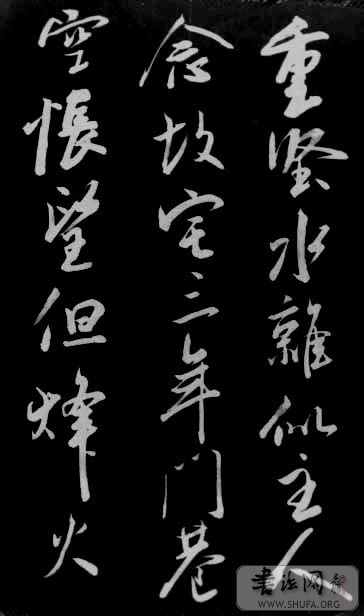 重水似主人
念故宅三年門巷
空悵望但烽火
書法网
WWW.SHUFA.ORG